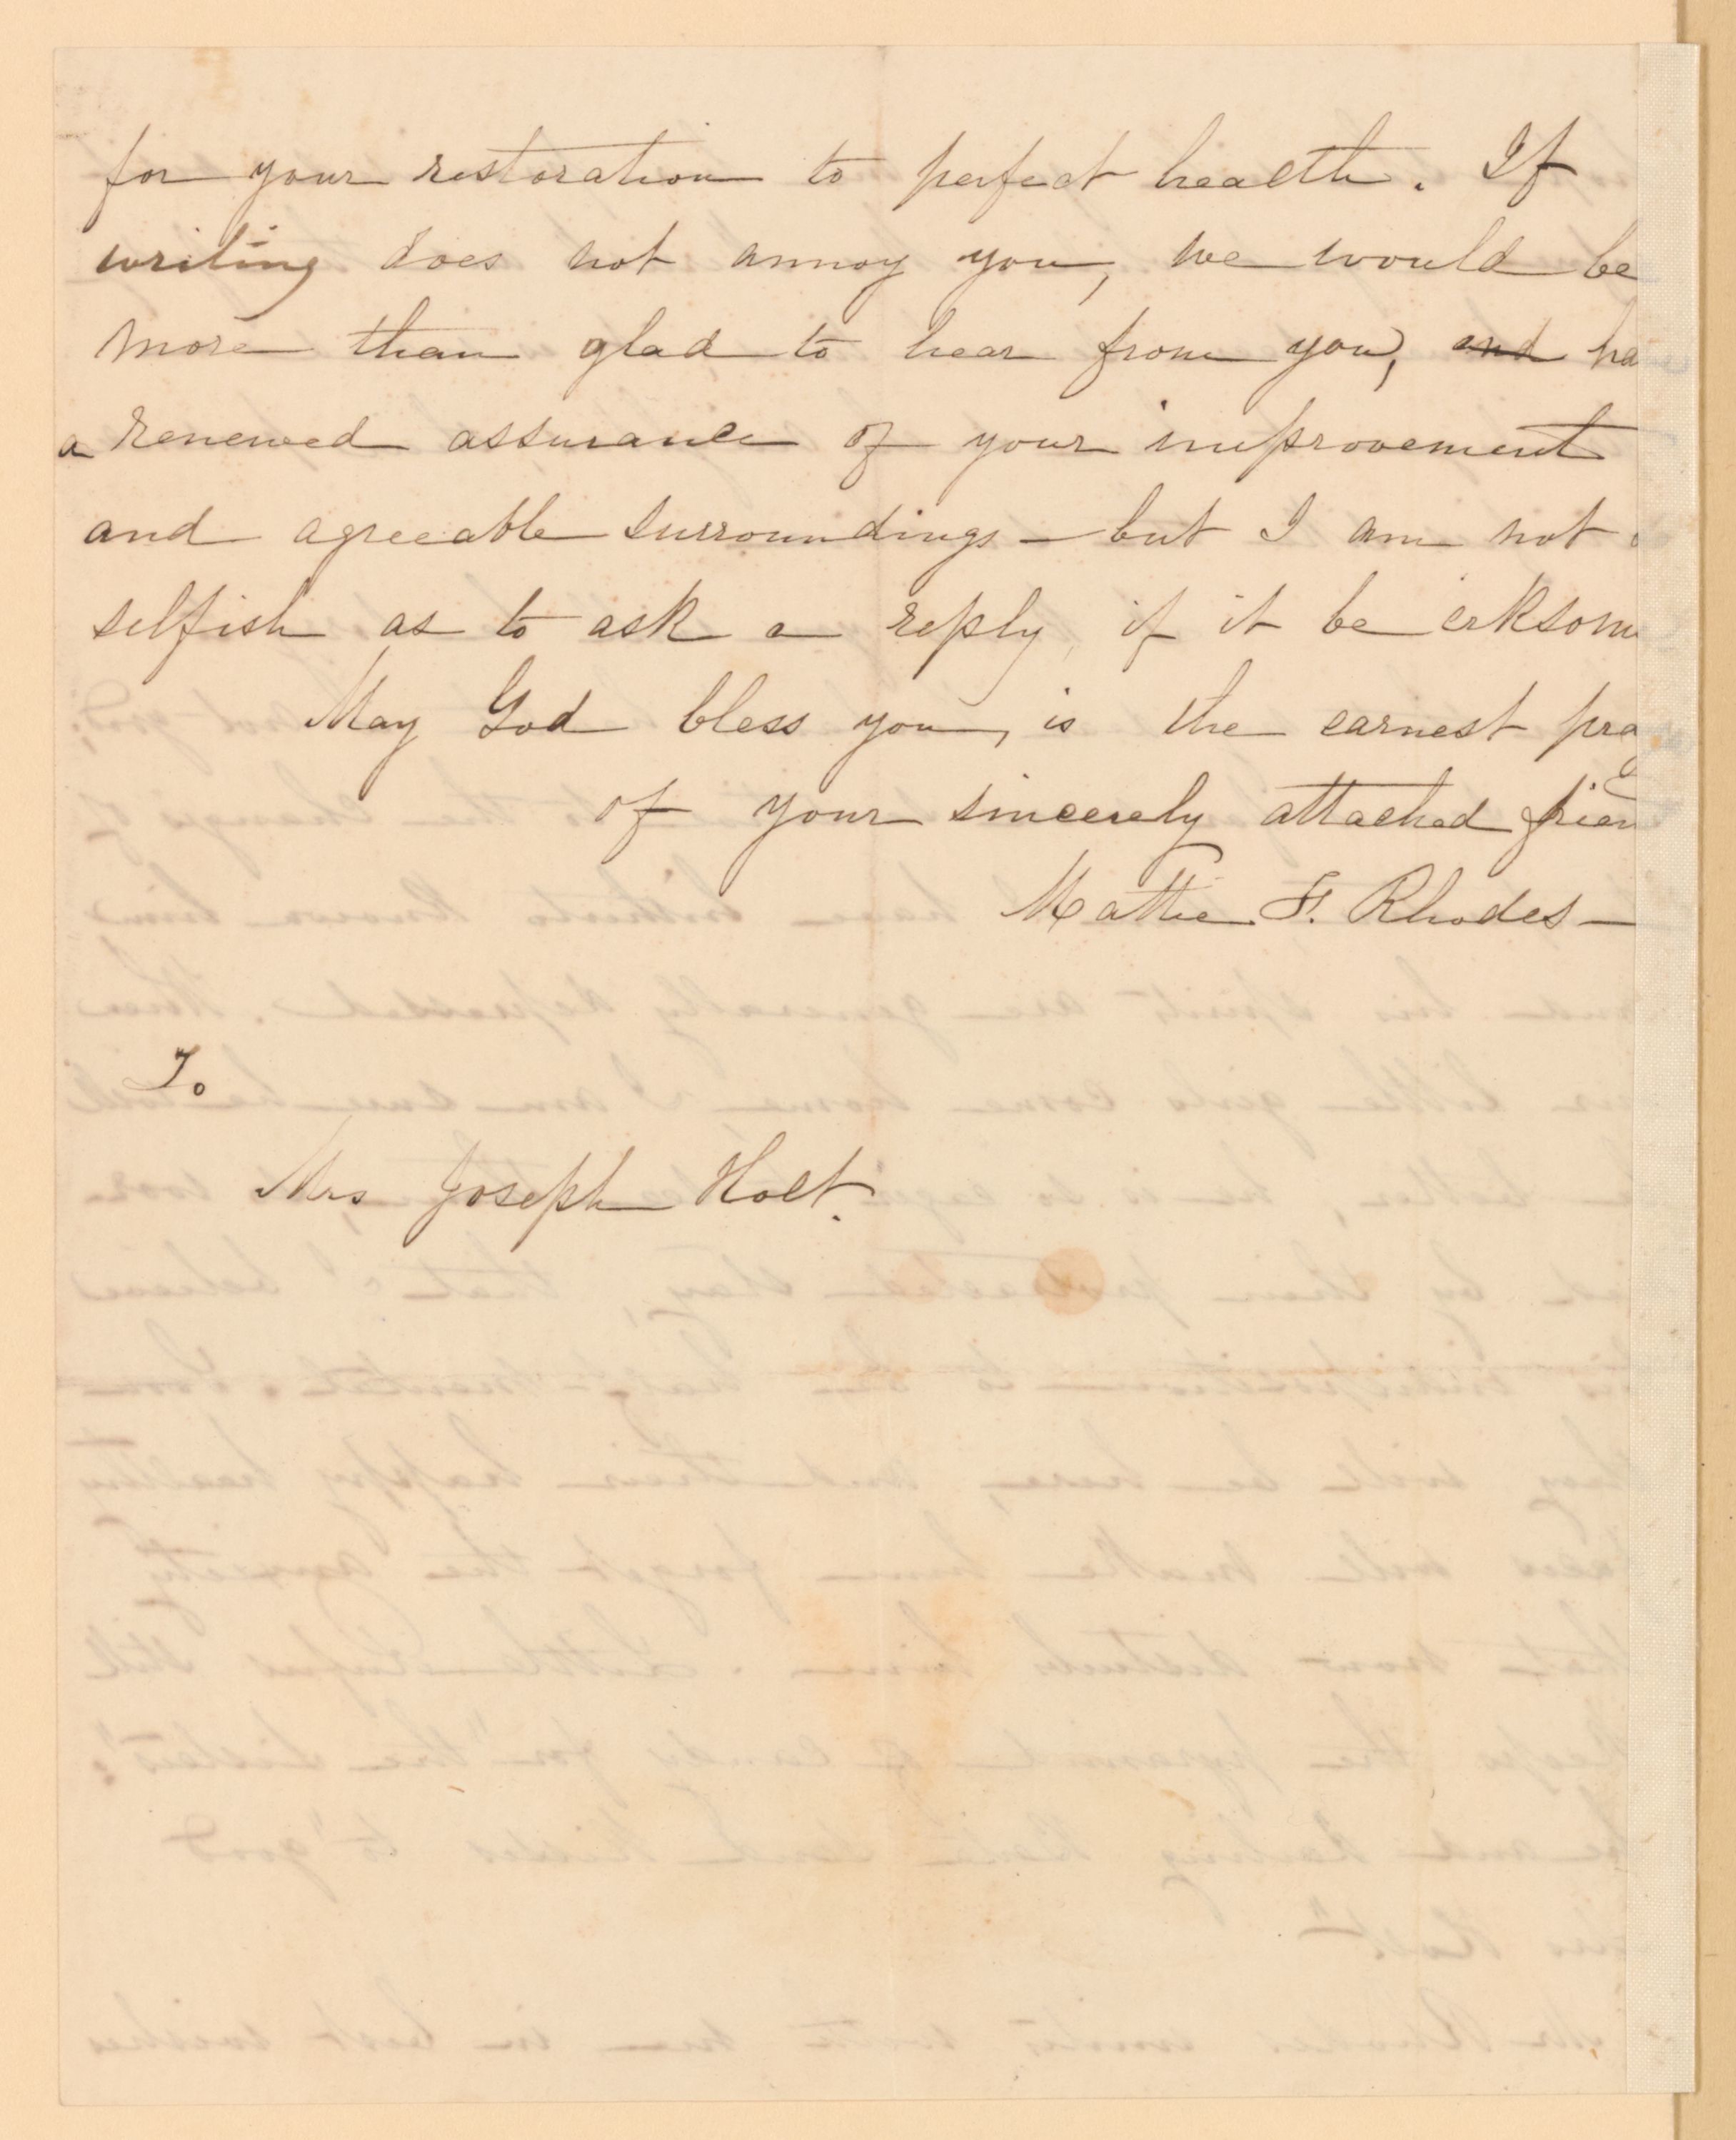 for your restoration to perfect health. If
writing does not annoy you, we would be
more than glad to hear from you, and ha
a renewed assurance of your improvement
and agreeable surroundings – but I am not
selfish as to ask a reply, if it be irksome
May God bless you, is the earnest pray
of your sincerely attached frien
Mattie F. Rhodes –
To
Mrs Joseph Holt.